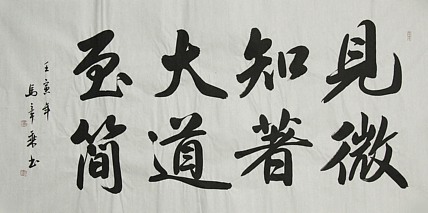 見微
知著
大道
至簡
壬寅年
馬章乘书